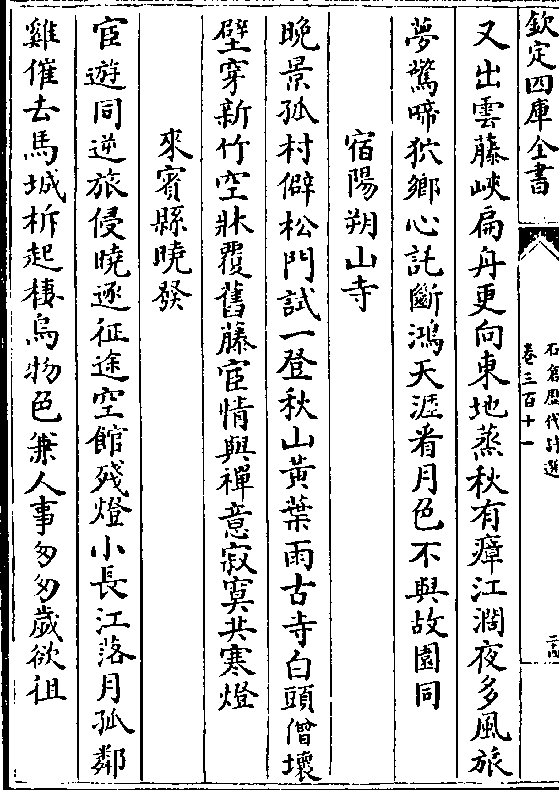 欽定四庫全書
石倉歷代詩選
卷三百十一
又出雲藤峽扁舟更向東地蒸秋有瘴江濶夜多風旅
夢驚啼狖鄉心託斷鴻天涯看月色不與故園同
宿陽朔山寺
晚景孤村僻松門試一登秋山黃葉雨古寺白頭僧壞
壁穿新竹空牀覆舊藤宦情與禪意寂寞共寒燈
來賓縣曉發
宦遊同逆旅侵曉逐征途空館殘燈小長江落月孤鄰
雞催去馬城柝起棲烏物色兼人事匆匆歲欲徂